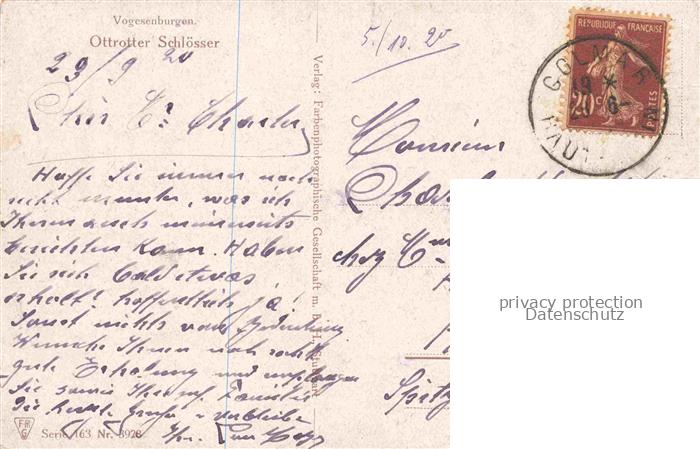 Vogesenburgen.
Ottrotter Schlösser
29/9 20
5./10. 20
RÉPUBLIQUE FRANÇAISE
20c
POSTES
COLMAR
HAUT
Hoffe Sie immer noch
recht munter, was ich
Ihnen auch meinerseits
berichten kann. Haben
Sie sich bald etwas
erholt? hoffentlich ja!
Sonst nichts von Bedeutung
Wünsche Ihnen noch recht
gute Erholung und empfangen
Sie sowie Ihre Familie
die herzl. Grüße
Monsieur
chez
Verlag: Farbenphotographische Gesellschaft m. b. H., Stuttgart
Serie 163 Nr. 3928
privacy protection
Datenschutz